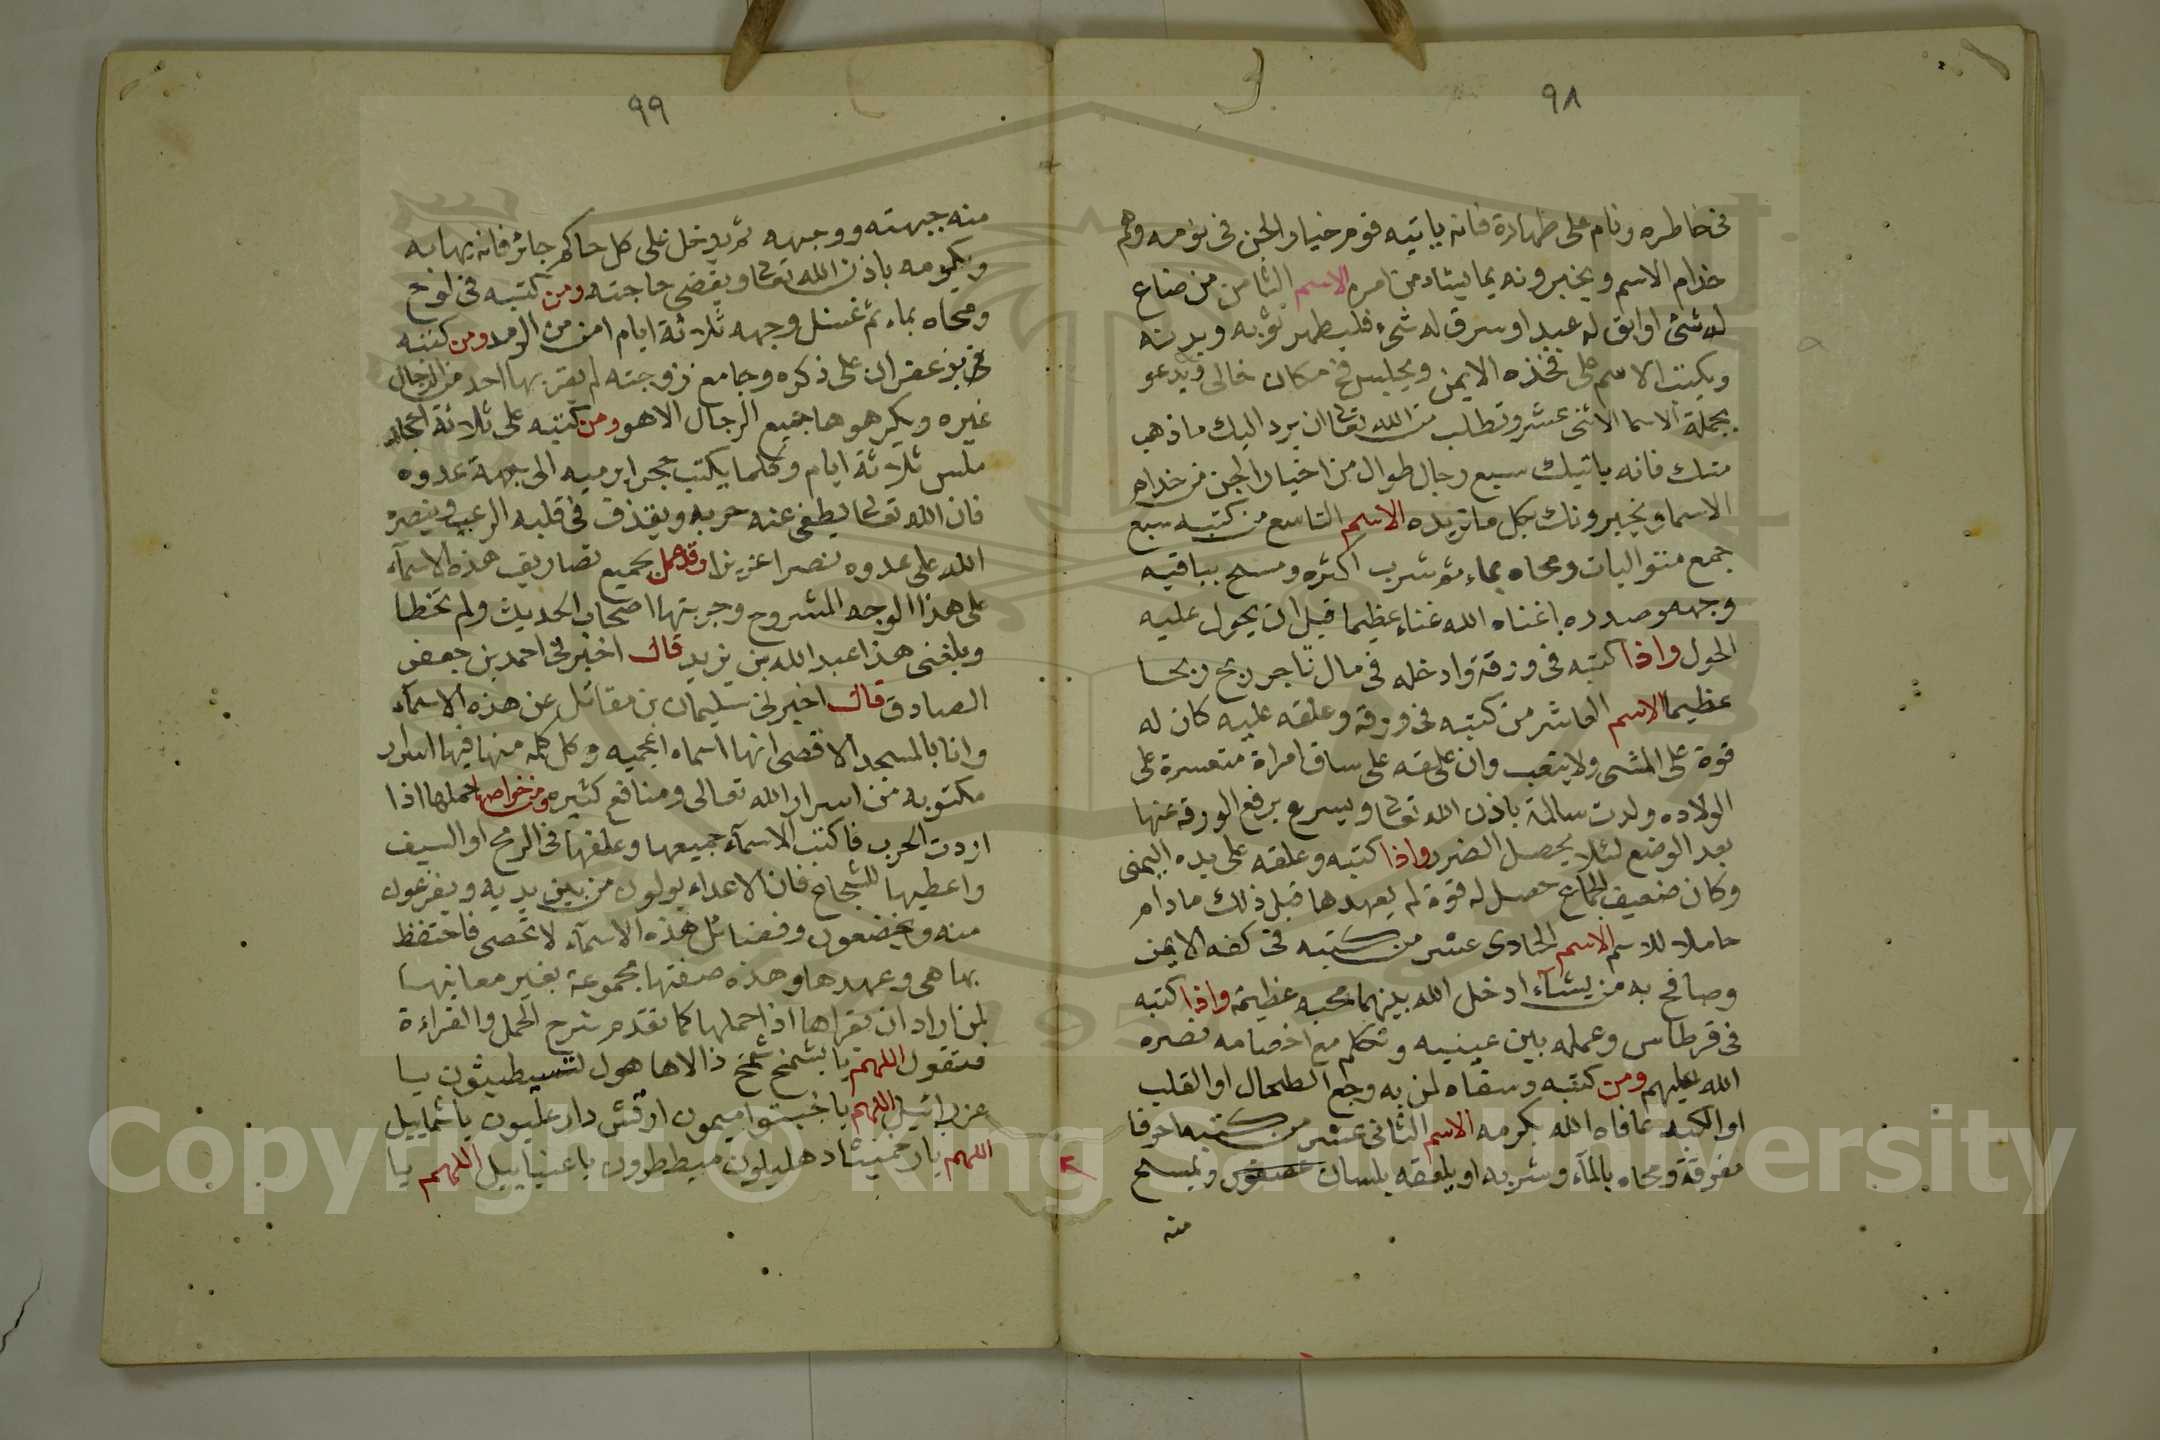 ٩٨
في خاطره ونام على طهارة فانه ياتيه قوم خيار الجن في نومه وهم
خدام الاسم ويخبرونه بما يشاء من امره الاسم الثامن من ضاع
له شئ او ابق له عبد او سرق له شيء فليطهر ثوبه وبدنه
ويكتب الاسم على فخذه الايمن ويجلس في مكان خالى ويدعو
بجملة الاسما الاثنى عشر وتطلب من الله تعا ان يرد اليك ما ذهب
منك فانه ياتيك سبع رجال طوال من اخيار الجن من خدام
الاسما ويخبرونك بكل ما تريده الاسم التاسع من كتبه سبع
جمع متواليات ومحاه بماء ثم شرب اكثره ومسح بباقيه
وجهه وصدره اغناه الله غناء عظيما قبل ان يحول عليه
الحول واذا كتبه في ورقة وادخله في مال تاجر ربح ربحا
عظيما الاسم العاشر من كتبه في ورقه وعلقه عليه كان له
قوة على المشى ولا يتعب وان علقه على ساق امراة متعسرة على
الولاده ولدت سالمة باذن الله تعا ويسرع برفع الورقه عنها
بعد الوضع لئلا يحصل الضرر واذا كتبه وعلقه على يده اليمنى
وكان ضعيف الجماع حصل له قوة لم يعهدها قبل ذلك مادام
حاملا للاسم الاسم الحادى عشر من كتبه في كفه الايمن
وصافح به من يشآء ادخل الله بينهما محبه عظيمة واذا كتبه
في قرطاس وعمله بين عينيه وتكلم مع اخصامه نصره
الله عليهم ومن كتبه وسقاه لمن به وجع الطحال او القلب
او الكبه عافاه الله بكرمه الاسم الثانى عشر من كتبه احرفا
مفرقة ومحاه بالمآء وشربه او يلعقه بلسان ويمسح
منه
٩٩
منه جبهته ووجهه ثم يدخل على كل حاكم جائر فانه يهابه
ويكرمه باذن الله تعا ويقضى حاجته ومن كتبه في لوح
ومحاه بماء ثم غسل وجهه ثلاثة ايام امن من الرمد ومن كتبه
في زعفران على ذكره وجامع زوجته لم يقربها احد من الرجال
غيره ويكرهوها جميع الرجال الا هو ومن كتبه على ثلاثة احجار
ملس ثلاثة ايام وكلما يكتب حجرا يرميه الى جهة عدوه
فان الله تعا يطفى عنه حربه ويقذف في قلبه الرعب وينصره
الله على عدوه نصرا عزيزا وقد عمل بجميع تصاريف هذه الاسمآء
على هذا الوجه المشروح وجربتها اصحاب الحديث ولم تخطا
وبلغنى هذا عبد الله بن يزيد قال اخبرنى احمد بن جعفر
الصادق قال اخبرنى سليمان بن مقاتل عن هذه الاسمآء
وانا بالمسجد الاقصى انها اسماء اعجميه وكل كلمه منها فيها اسرار
مكتوبه من اسرار الله تعالى ومنافع كثيره ومن خواصها حملها اذا
اردت الحرب فاكتب الاسمآء جميعها وعلقها في الرمح او السيف
واعطيها للشجاع فان الاعداء يولون من بين يديه ويفزعون
منه ويخضعون وفضائل هذه الاسمآء لا تحصى فاحتفظ
بها هى وعهدها وهذه صفتها مجموعة بغير معانيها
لمن اراد ان يقراها اذا حملها كما تقدم شرح الحمل والقراءة
فتقول اللهم يا بشمخ شمخ ذا لاها هول لتسيطيثون يا
عزرائيل اللهم يا خبيثوا ميمون ارقش دار عليون يا شماييل
اللهم يا رحمنيثاد هليلون ميططرون يا عنياييل اللهم يا
Copyright © King Saud University
1957